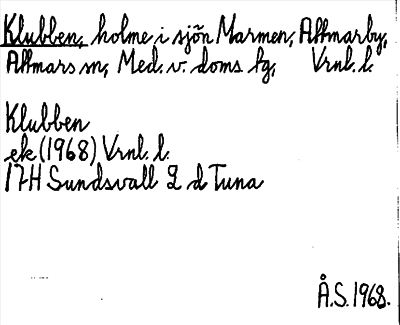 Klubben, holme i sjön Marmen, Attmarby,
Attmars sn, Med. v. doms tg, Vrnl. l.
Klubben
ek (1968) Vrnl. l.
17H Sundsvall 2 d Tuna
Å.S. 1968.